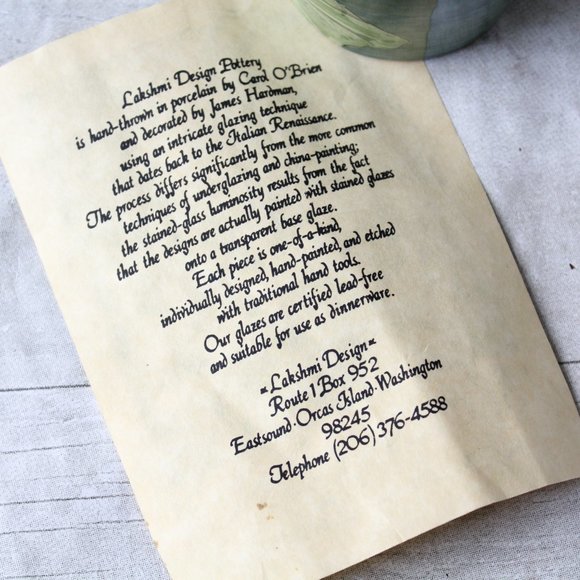 Lakshmi Design Pottery
is hand-thrown in porcelain by Carol O'Brien
and decorated by James Hardman,
using an intricate glazing technique
that dates back to the Italian Renaissance.
The process differs significantly from the more common
techniques of underglazing and china-painting;
the stained-glass luminosity results from the fact
that the designs are actually painted with stained glazes
onto a transparent base glaze.
Each piece is one-of-a-kind,
individually designed, hand-painted, and etched
with traditional hand tools.
Our glazes are certified lead-free
and suitable for use as dinnerware.
"Lakshmi Design"
Route 1 Box 952
Eastsound·Orcas Island·Washington
98245
Telephone (206) 376-4588